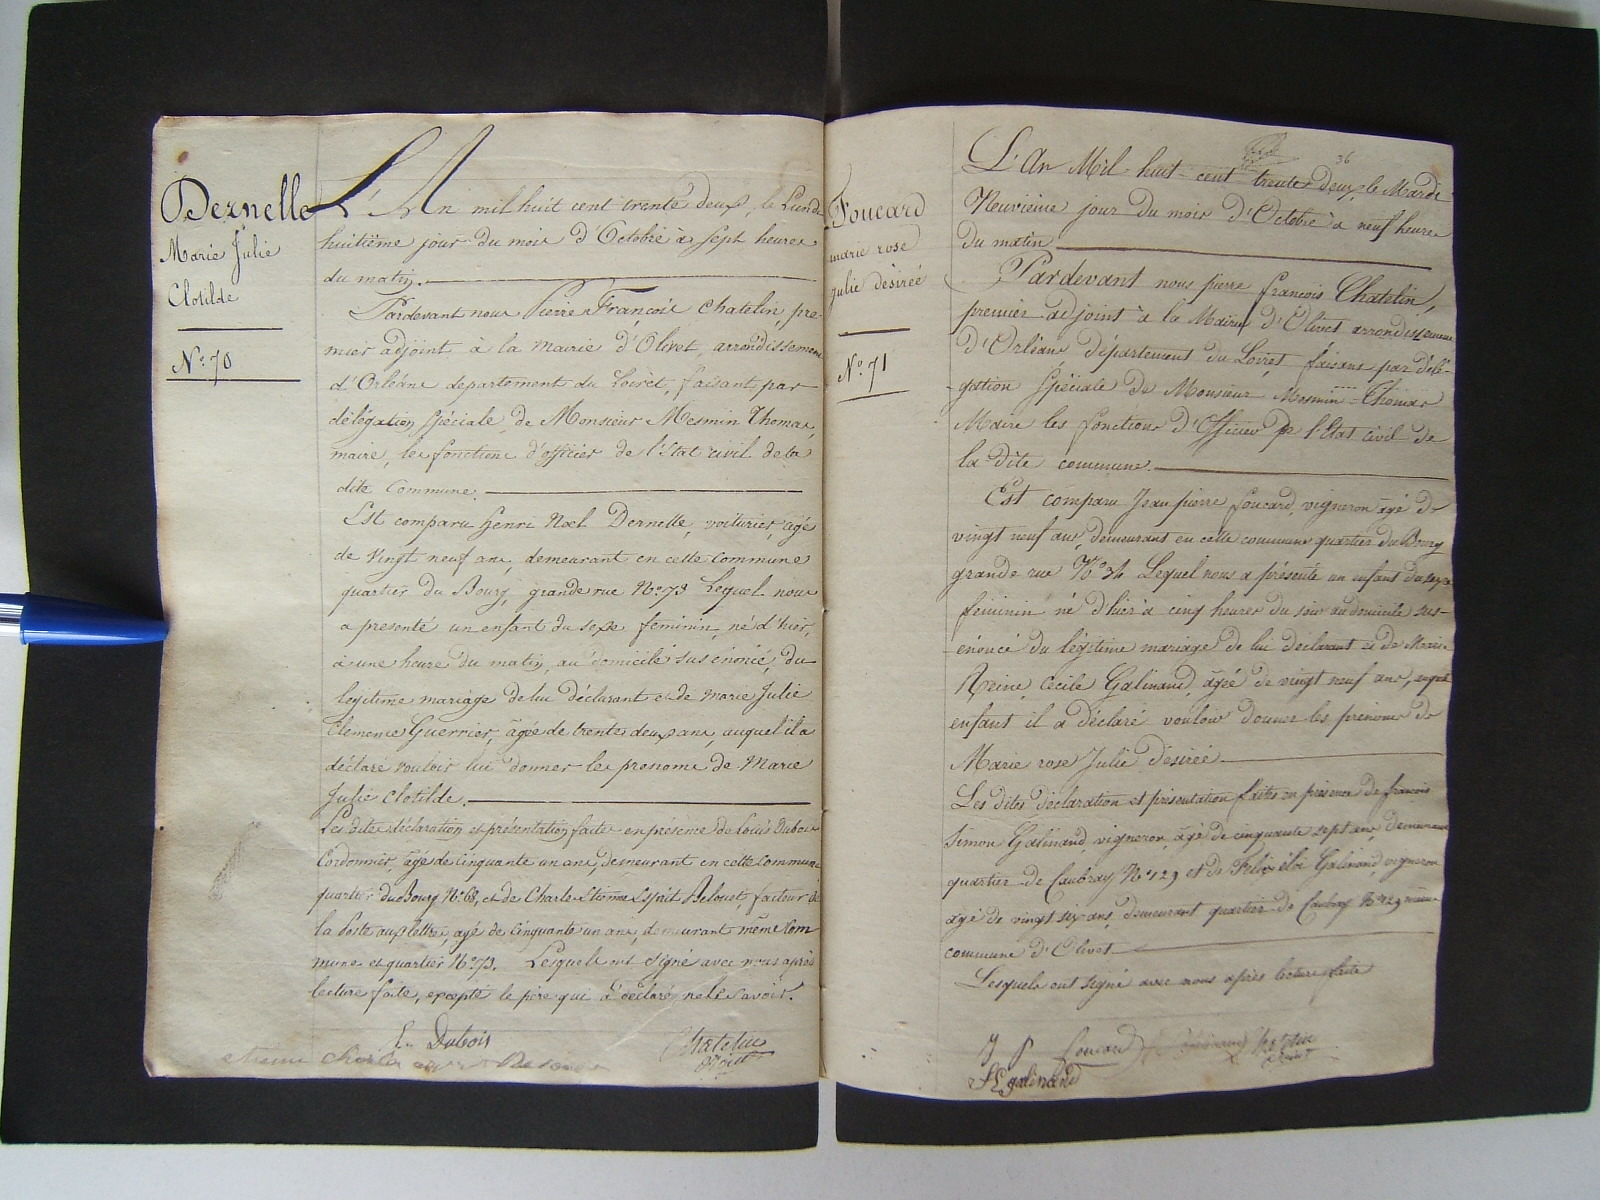 Dernelle
Marie Julie
Clotilde
N° 70
L'An mil huit cent trente deux, le Lundi
huitième jour du mois d'Octobre à sept heures
du matin.
Pardevant nous Pierre François Chatelin, pre-
mier adjoint à la mairie d'Olivet, arrondissement
d'Orléans departement du Loiret, faisant par
délégation spéciale, de Monsieur Mesmin Thomas,
maire, les fonctions d'officier de l'Etat civil de la
dite Commune.
Est comparu henri Noel Dernelle, voiturier, agé
de vingt neuf ans, demeurant en cette commune
quartier du Bourg, grande rue N° 73 Lequel nous
a presenté un enfant du sexe feminin, né d'hier,
à une heure du matin, au domicile sus énoncé, du
legitime mariage de lui déclarant et de marie Julie
Clemence Guerrier, âgée de trente deux ans, auquel il a
déclaré vouloir lui donner les prenoms de Marie
Julie Clotilde.
Les dites déclaration et présentation faites en présence de Louis Dubois
Cordonnier, âgé de cinquante un ans, demeurant en cette commune
quartier du Bourg N° 68, et de Charles Etienne Esprit Belouet, facteur de
la poste aux lettres, agé de cinquante un ans, demeurant même Com
mune et quartier N° 73. Lesquels ont signé avec nous après
lecture faite, excepté le père qui a déclaré ne le savoir.
L. Dubois Chatelin
adjoint
etienne charle
36
Foucard
marie rose
julie désiré
N° 71
L'An Mil huit cent trente deux, le Mardi
Neuvième jour du mois d'Octobre à neuf heures
du matin
Pardevant nous pierre françois Chatelin,
premier adjoint à la Mairie d'Olivet arrondissement
d'Orléans département du Loiret, faisant par délé-
gation Spéciale de Monsieur Mesmin Thomas
Maire les fonctions d'Officier de l'Etat civil de
la dite commune.
Est comparu Jean pierre foucard, vigneron âgé de
vingt neuf ans, demeurant en cette commune quartier du Bourg
grande rue N° 34 Lequel nous a présenté un enfant du sexe
feminin né d'hier à cinq heures du soir au domicile sus-
énoncé du légitime mariage de lui déclarant et de Marie
Reine Cecile Galinand, âgée de vingt neuf ans, auquel
enfant il a déclaré vouloir donner les prénoms de
Marie rose Julie désirée
Les dites déclaration et présentation faites en présence de françois
Simon Galinand, vigneron, âgé de cinquante sept ans, demeurant
quartier de Caubray N° 129 et de Felix éloi Galinand, vigneron
âgé de vingt six ans, demeurant quartier de Caubray N° 129 même
commune d'Olivet
Lesquels ont signé avec nous après lecture faite
J P foucard Chatelin
adjoint
F E galinand